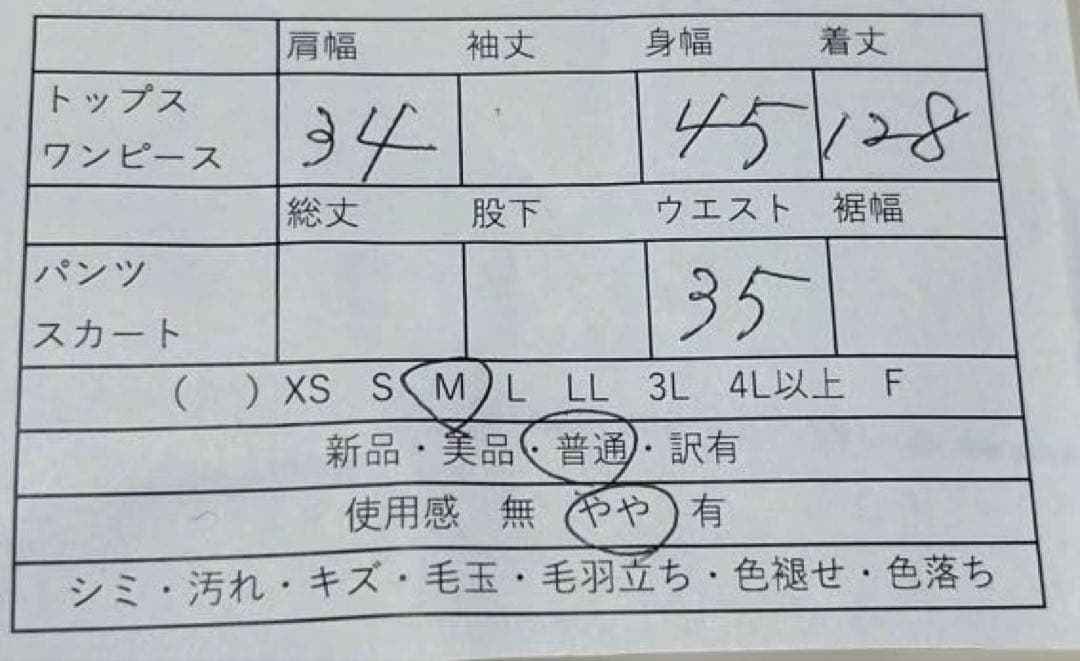 肩幅 袖丈 身幅 着丈
トップス
ワンピース
34 45 128
総丈 股下 ウエスト 裾幅
パンツ
スカート
35
( ) XS S M L LL 3L 4L以上 F
新品・美品・普通・訳有
使用感 無 やや 有
シミ・汚れ・キズ・毛玉・毛羽立ち・色褪せ・色落ち